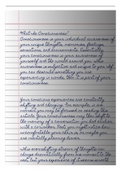 What is Consciousness?
Consciousness is your individual awareness of
your unique thoughts, memories, feelings,
sensations, and environments. Essentially,
your consciousness is your awareness of
yourself and the world around you. This
awareness is subjective and unique to you. If
you can describe something you are
experiencing in words, then it is part of your
consciousness.
Your conscious experiences are constantly
shifting and changing. For example, in one
moment you may be focused on reading this
article. Your consciousness may then shift to
the memory of a conversation you had earlier
with a co-worker. Next, you might notice how
uncomfortable your chair is, or maybe you
are mentally planning dinner.
This ever-shifting stream of thoughts can
change dramatically from one moment to the
next, but your experience of it seems smooth